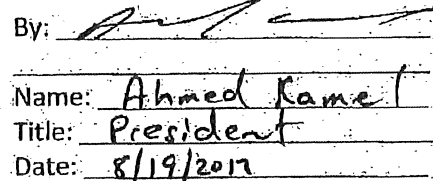 By:
Name: Ahmed Kamel
Title: President
Date: 8/19/2017